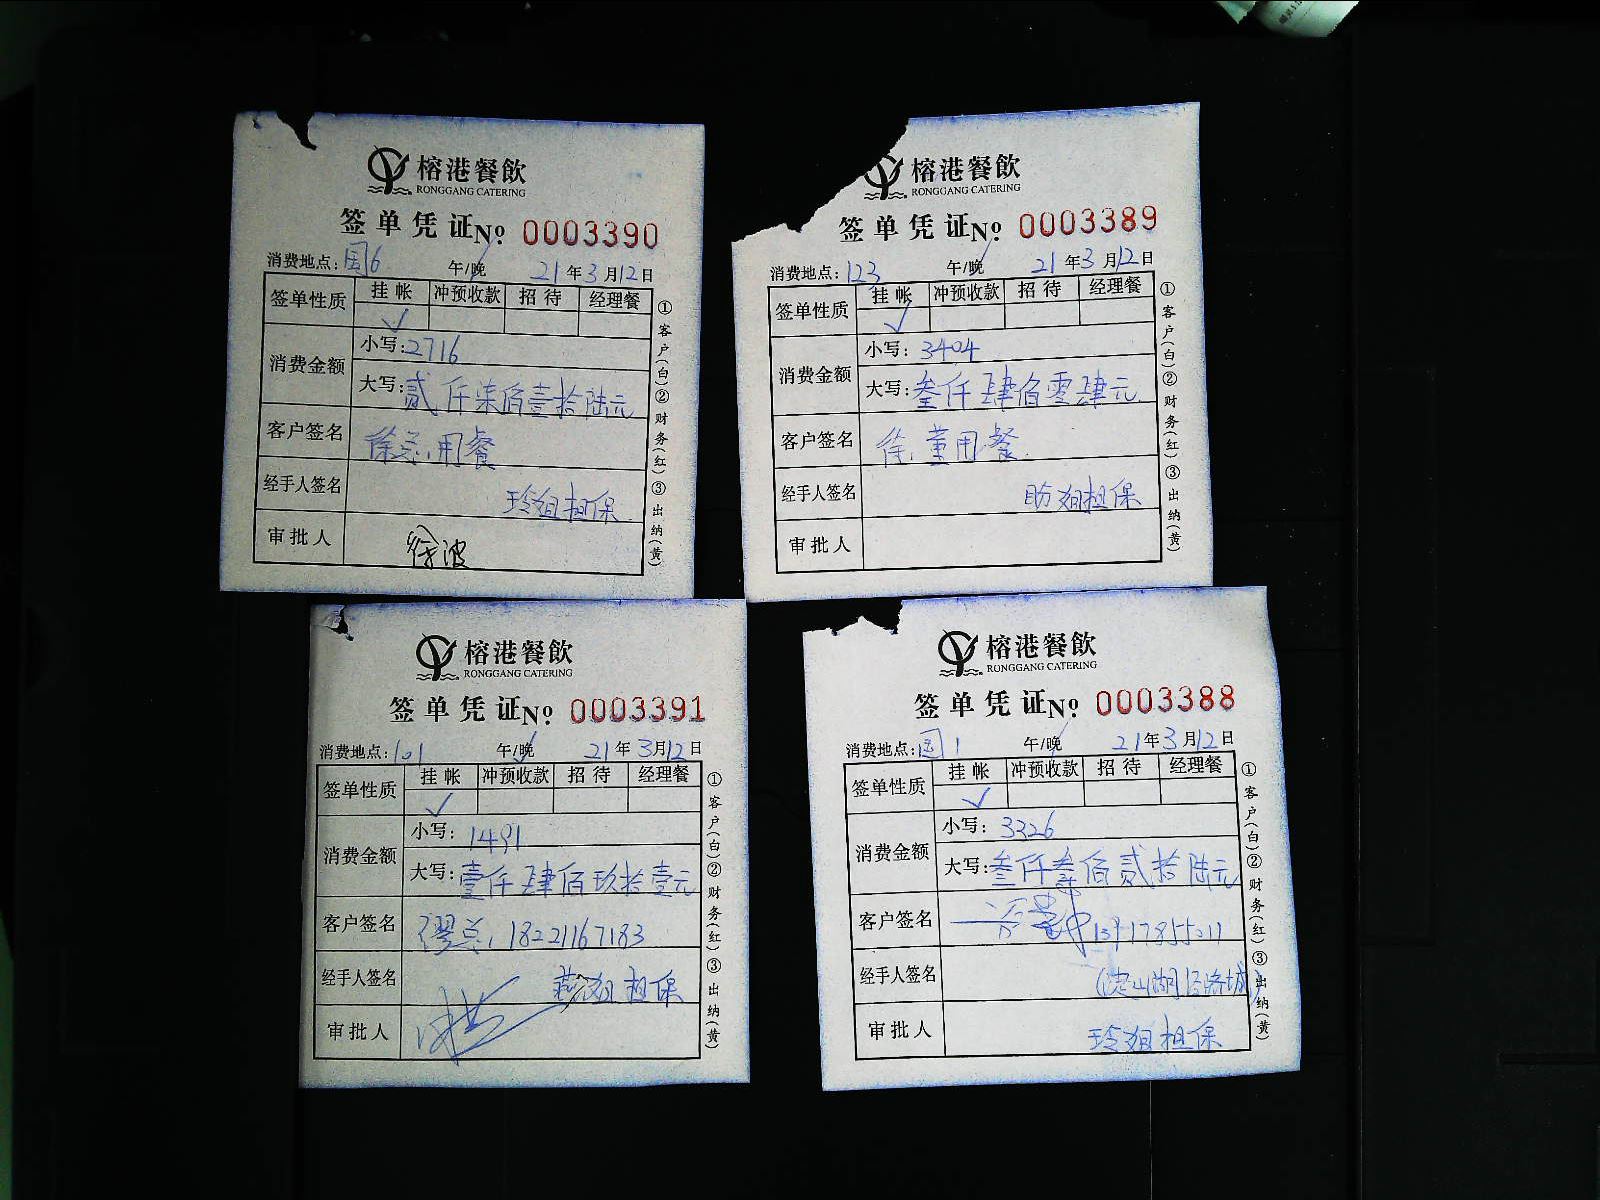 榕港餐飲
RONGGANG CATERING
签单凭证№ 0003390
消费地点:国6 午/晚 21年3月12日
签单性质 挂帐 冲预收款 招待 经理餐
✓
消费金额 小写:2716
大写:贰仟柒佰壹拾陆元
客户签名 徐总用餐
经手人签名 玲姐担保
审批人 徐波
①客户(白)②财务(红)③出纳(黄)
榕港餐飲
RONGGANG CATERING
签单凭证№ 0003389
消费地点:123 午/晚 21年3月12日
签单性质 挂帐 冲预收款 招待 经理餐
✓
消费金额 小写:3404
大写:叁仟肆佰零肆元
客户签名 徐董用餐
经手人签名 盼姐担保
审批人
①客户(白)②财务(红)③出纳(黄)
榕港餐飲
RONGGANG CATERING
签单凭证№ 0003391
消费地点:101 午/晚 21年3月12日
签单性质 挂帐 冲预收款 招待 经理餐
✓
消费金额 小写:1491
大写:壹仟肆佰玖拾壹元
客户签名 缪总 18221167183
经手人签名 燕姐担保
审批人
①客户(白)②财务(红)③出纳(黄)
榕港餐飲
RONGGANG CATERING
签单凭证№ 0003388
消费地点:国1 午/晚 21年3月12日
签单性质 挂帐 冲预收款 招待 经理餐
✓
消费金额 小写:3326
大写:叁仟叁佰贰拾陆元
客户签名 13917855211
经手人签名 (淀山湖
审批人 玲姐担保
①客户(白)②财务(红)③出纳(黄)